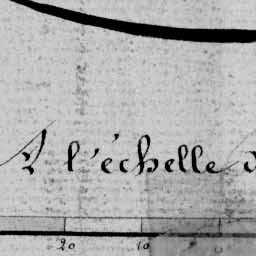 A l'échelle
20 10